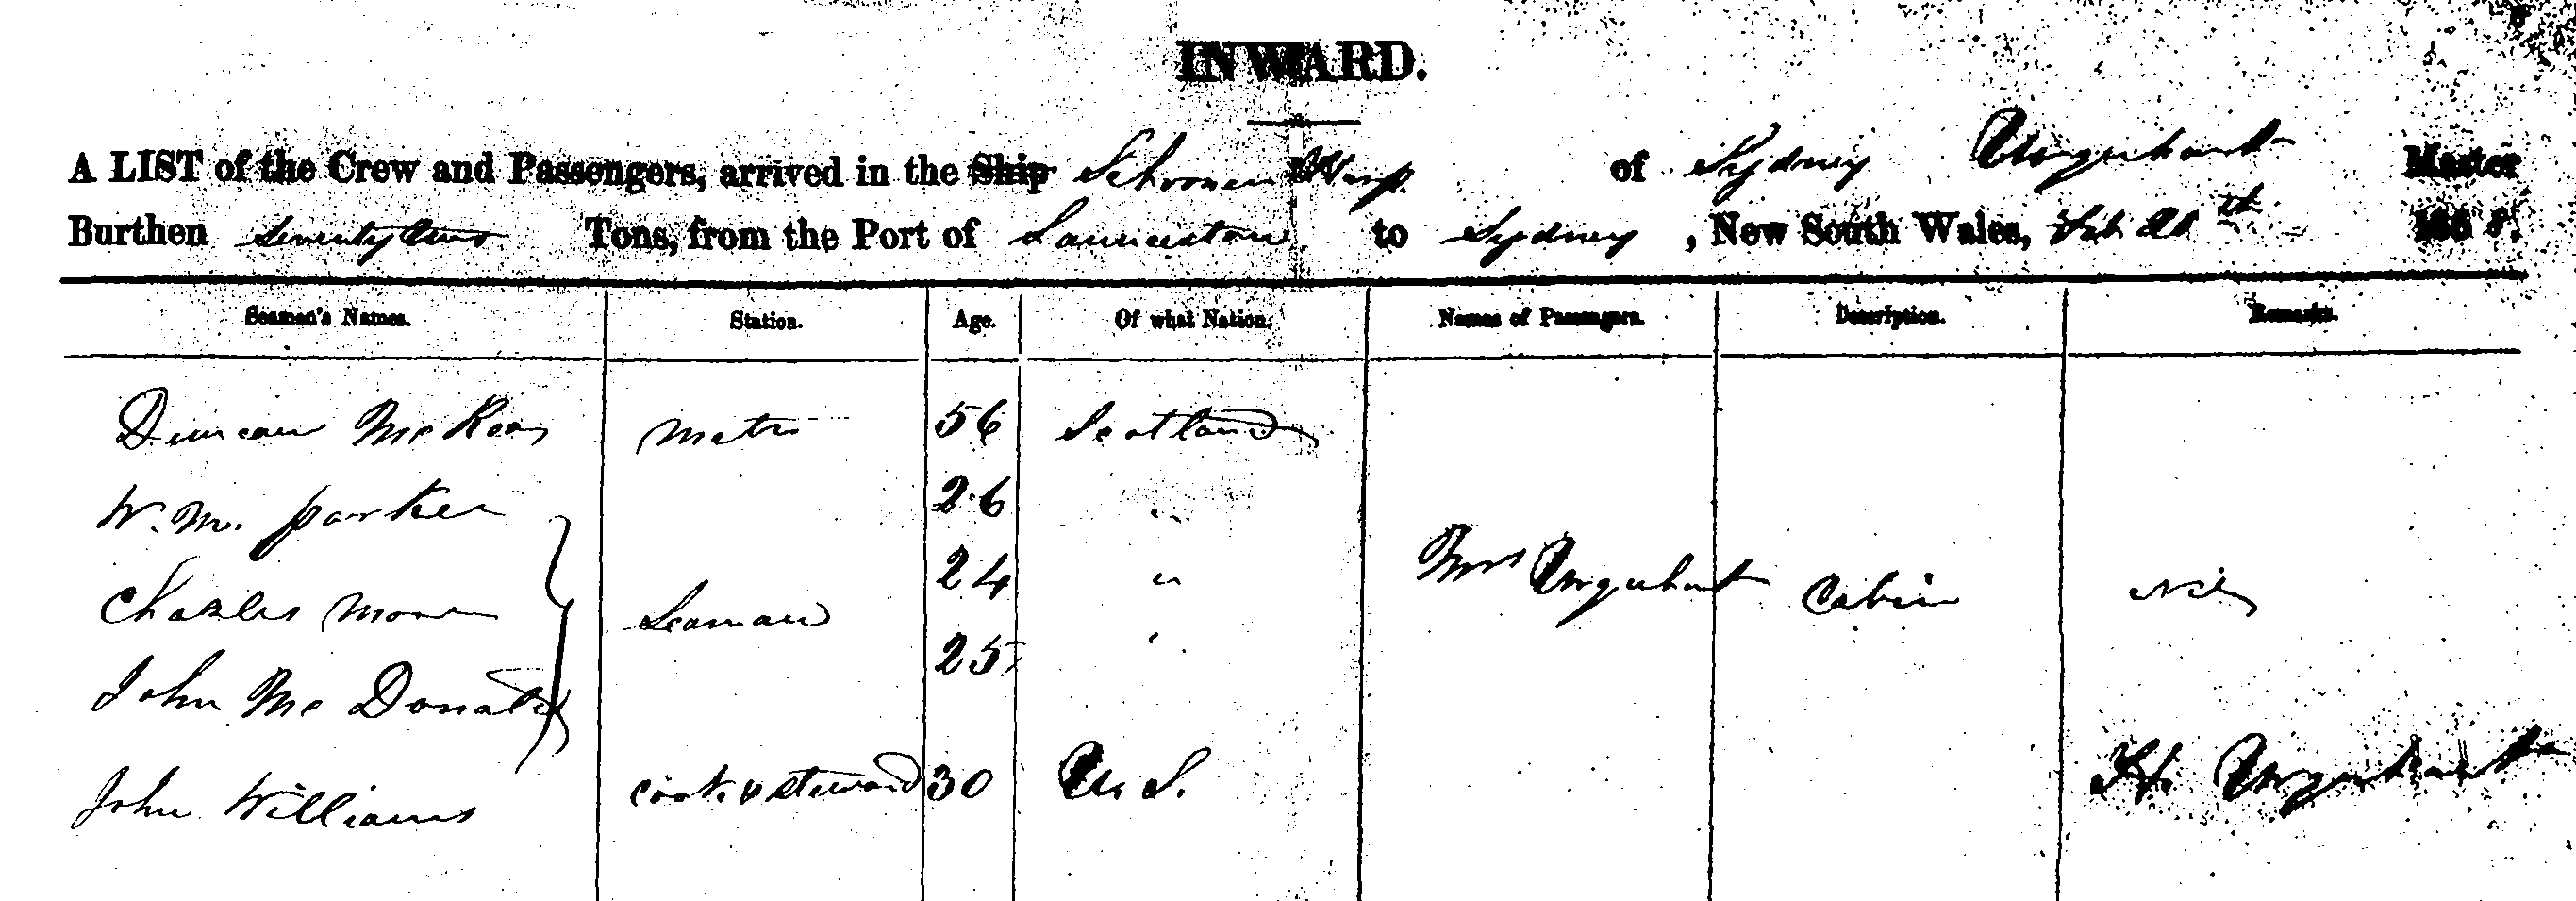 INWARD.
A LIST of the Crew and Passengers, arrived in the Ship Schooner Wasp of Sydney Urquhart Master
Burthen Seventy two Tons, from the Port of Launceston to Sydney, New South Wales, th 1858.
Seamen's Names. Station. Age. Of what Nation. Names of Passengers. Description. Remarks.
Duncan McRea Mate 56 Scotland
W. M. Parker 26 "
Charles 24 " Mrs Urquhart Cabin Nil
Seaman
John McDonald 25 "
John Williams Cook & Steward 30 U. S. H. Urquhart